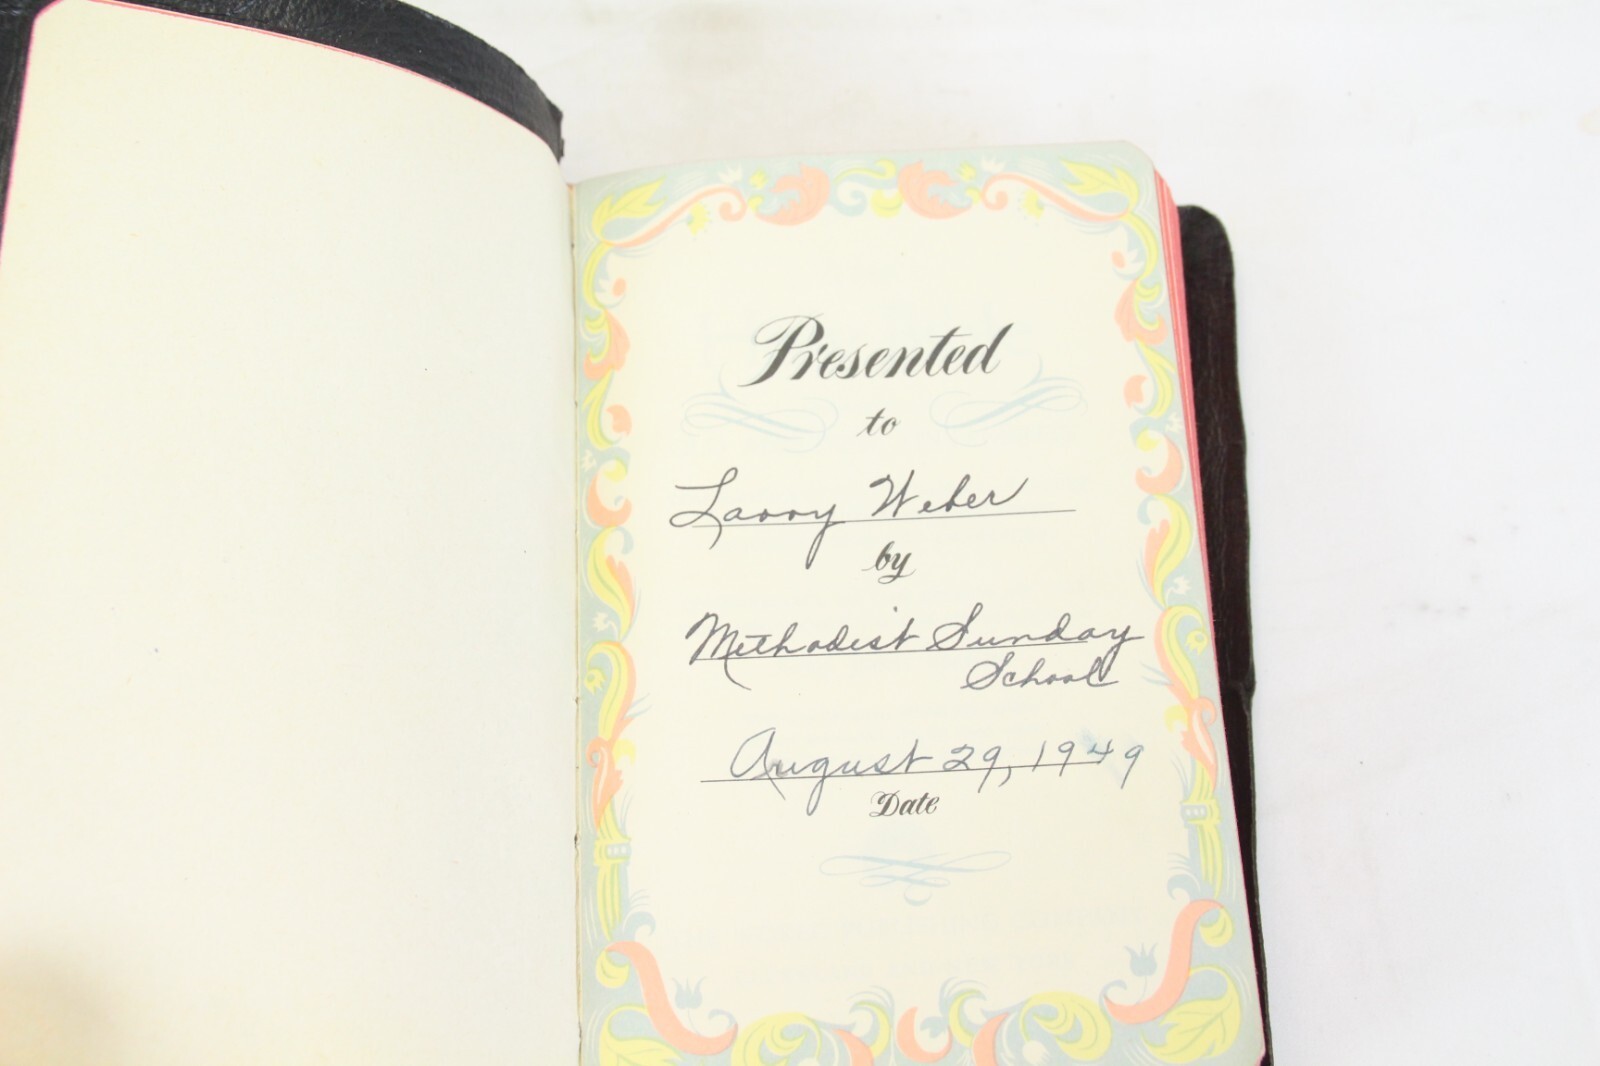 Presented
to
Larry Weber
by
Methodist Sunday
School
August 29, 1949
Date